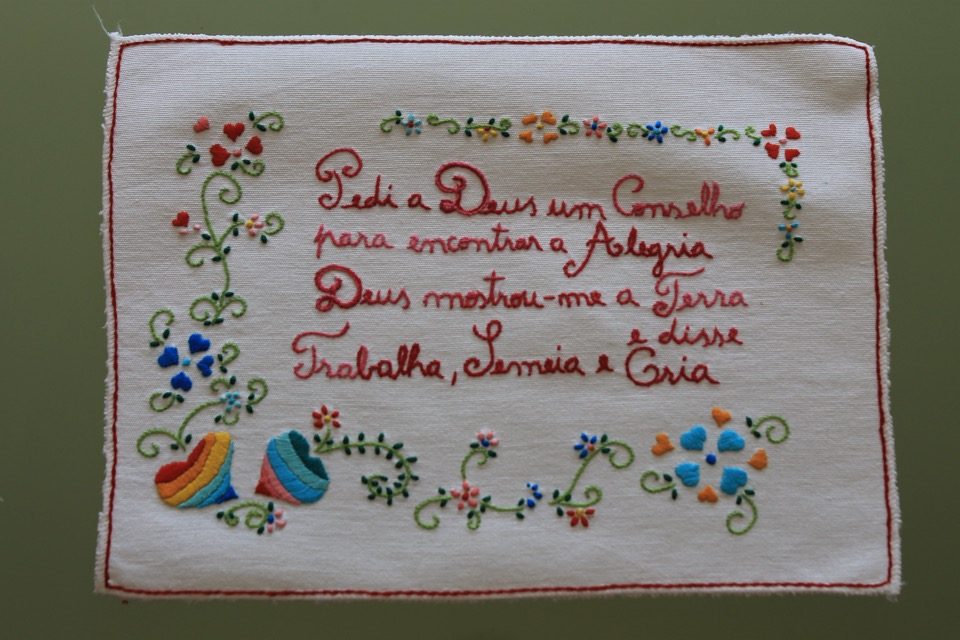 Pedi a Deus um Conselho
para encontrar a Alegria
Deus mostrou-me a Terra
e disse
Trabalha, Semeia e Cria